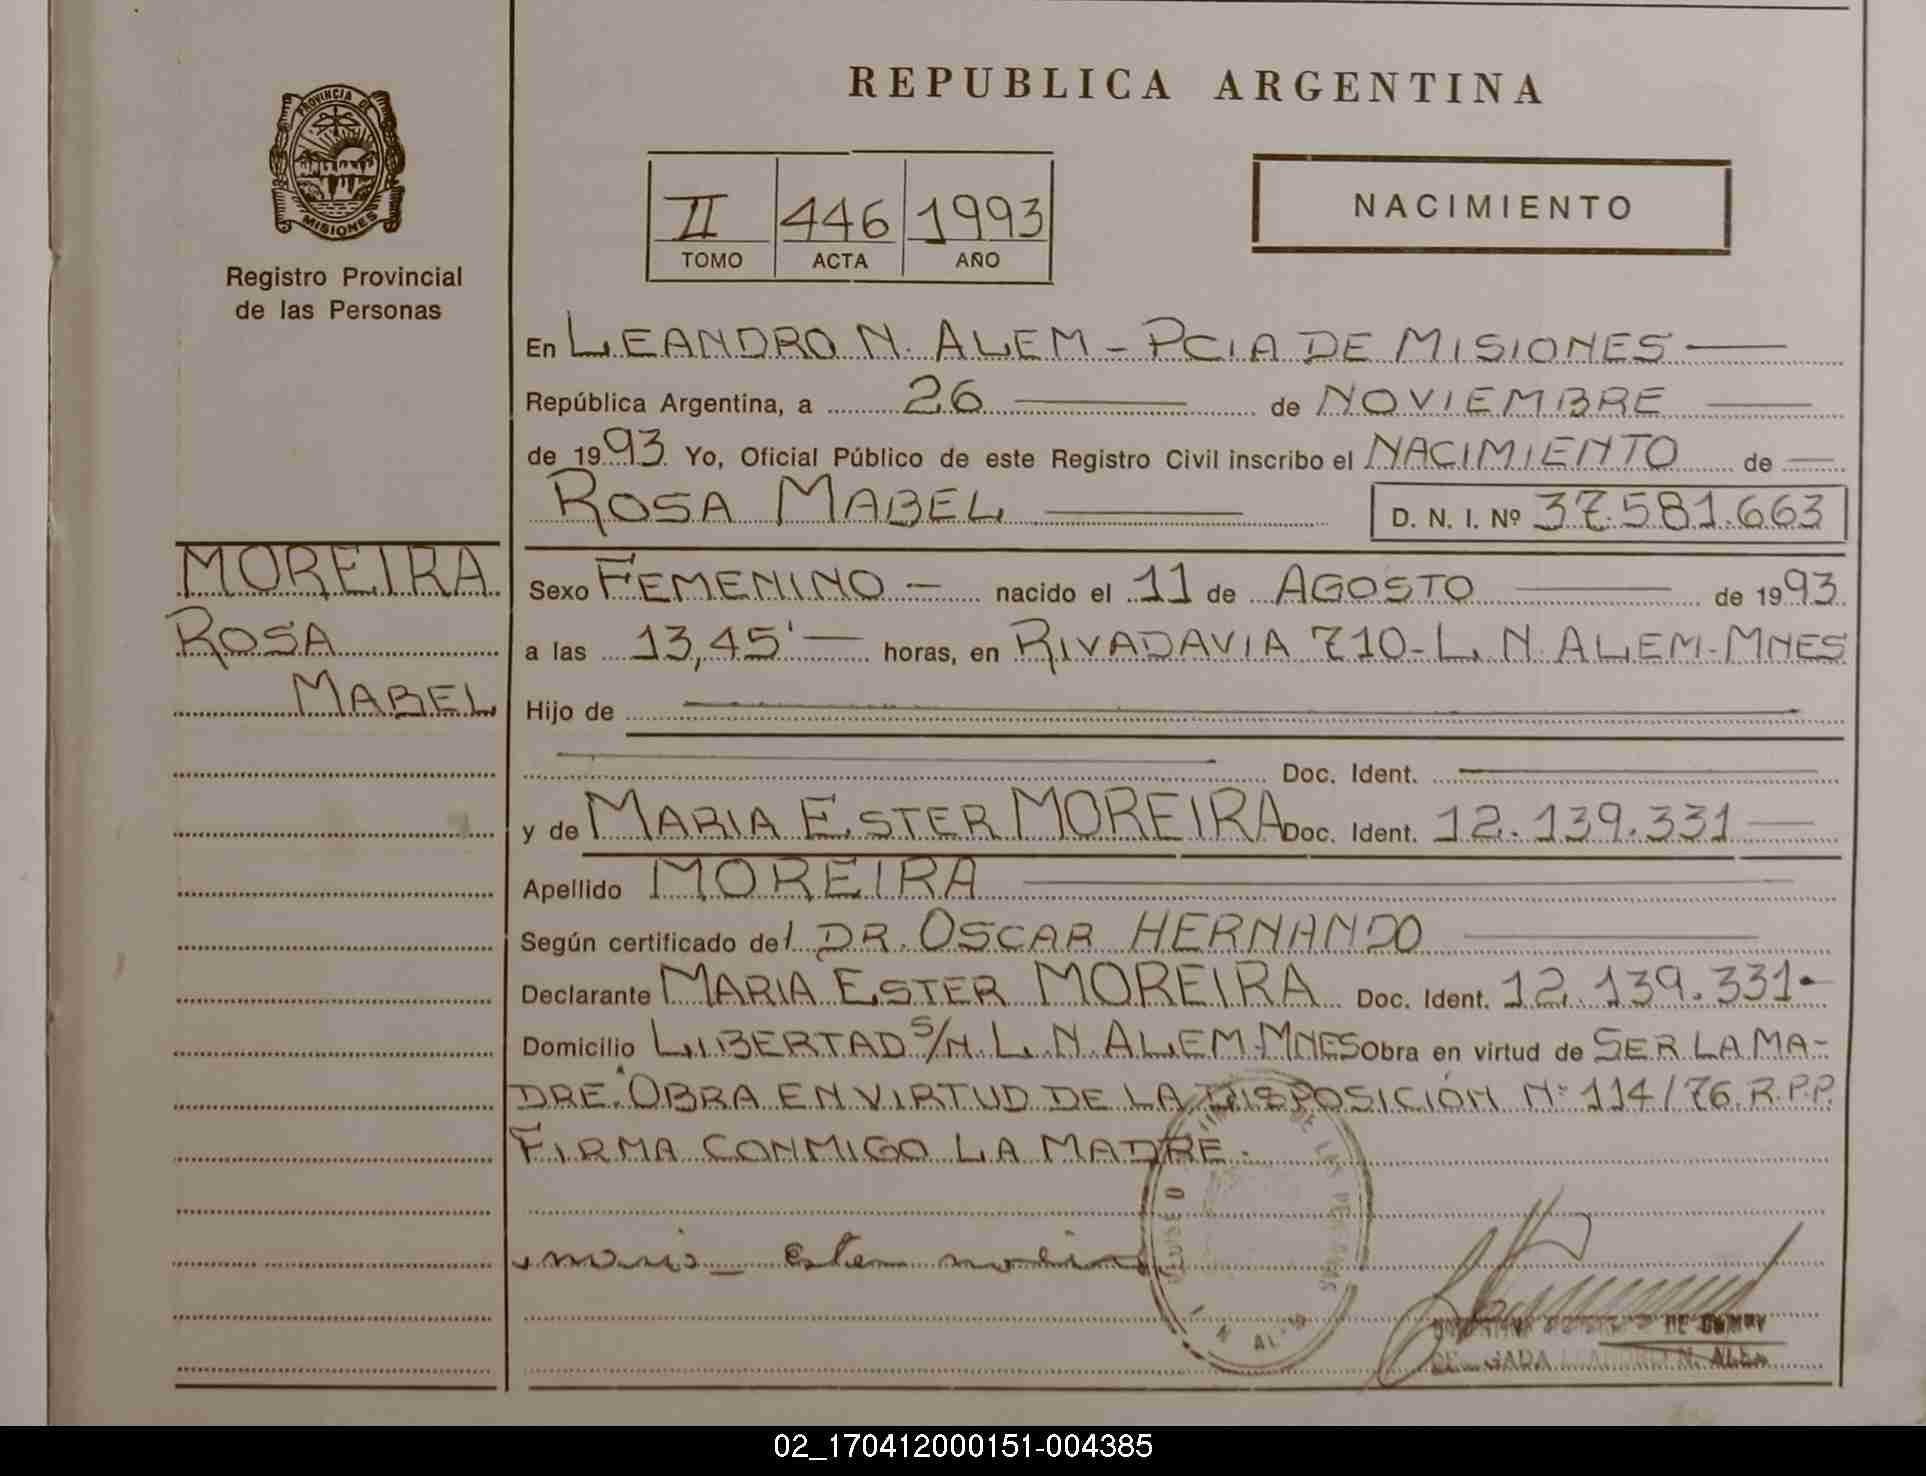 REPUBLICA ARGENTINA
PROVINCIA DE
MISIONES
Registro Provincial
de las Personas
II 446 1993
TOMO ACTA AÑO
NACIMIENTO
En LEANDRO N. ALEM - PCIA DE MISIONES
República Argentina, a 26 de NOVIEMBRE
de 1993 Yo, Oficial Público de este Registro Civil inscribo el NACIMIENTO de
ROSA MABEL D. N. I. Nº 37.581.663
MOREIRA
ROSA
MABEL
Sexo FEMENINO - nacido el 11 de AGOSTO de 1993
a las 13,45' horas, en RIVADAVIA 710-L. N. ALEM-MNES
Hijo de
Doc. Ident.
y de MARIA ESTER MOREIRA Doc. Ident. 12.139.331
Apellido MOREIRA
Según certificado del DR. OSCAR HERNANDO
Declarante MARIA ESTER MOREIRA Doc. Ident. 12.139.331.-
Domicilio LIBERTAD S/N. L. N. ALEM-MNES Obra en virtud de SER LA MA-
DRE. "OBRA EN VIRTUD DE LA DISPOSICIÓN Nº 114/76. R.P.P.
FIRMA CONMIGO LA MADRE.
DE LAS PERSONAS
maria Ester moreira
LEANDRO N. ALEM
02_170412000151-004385